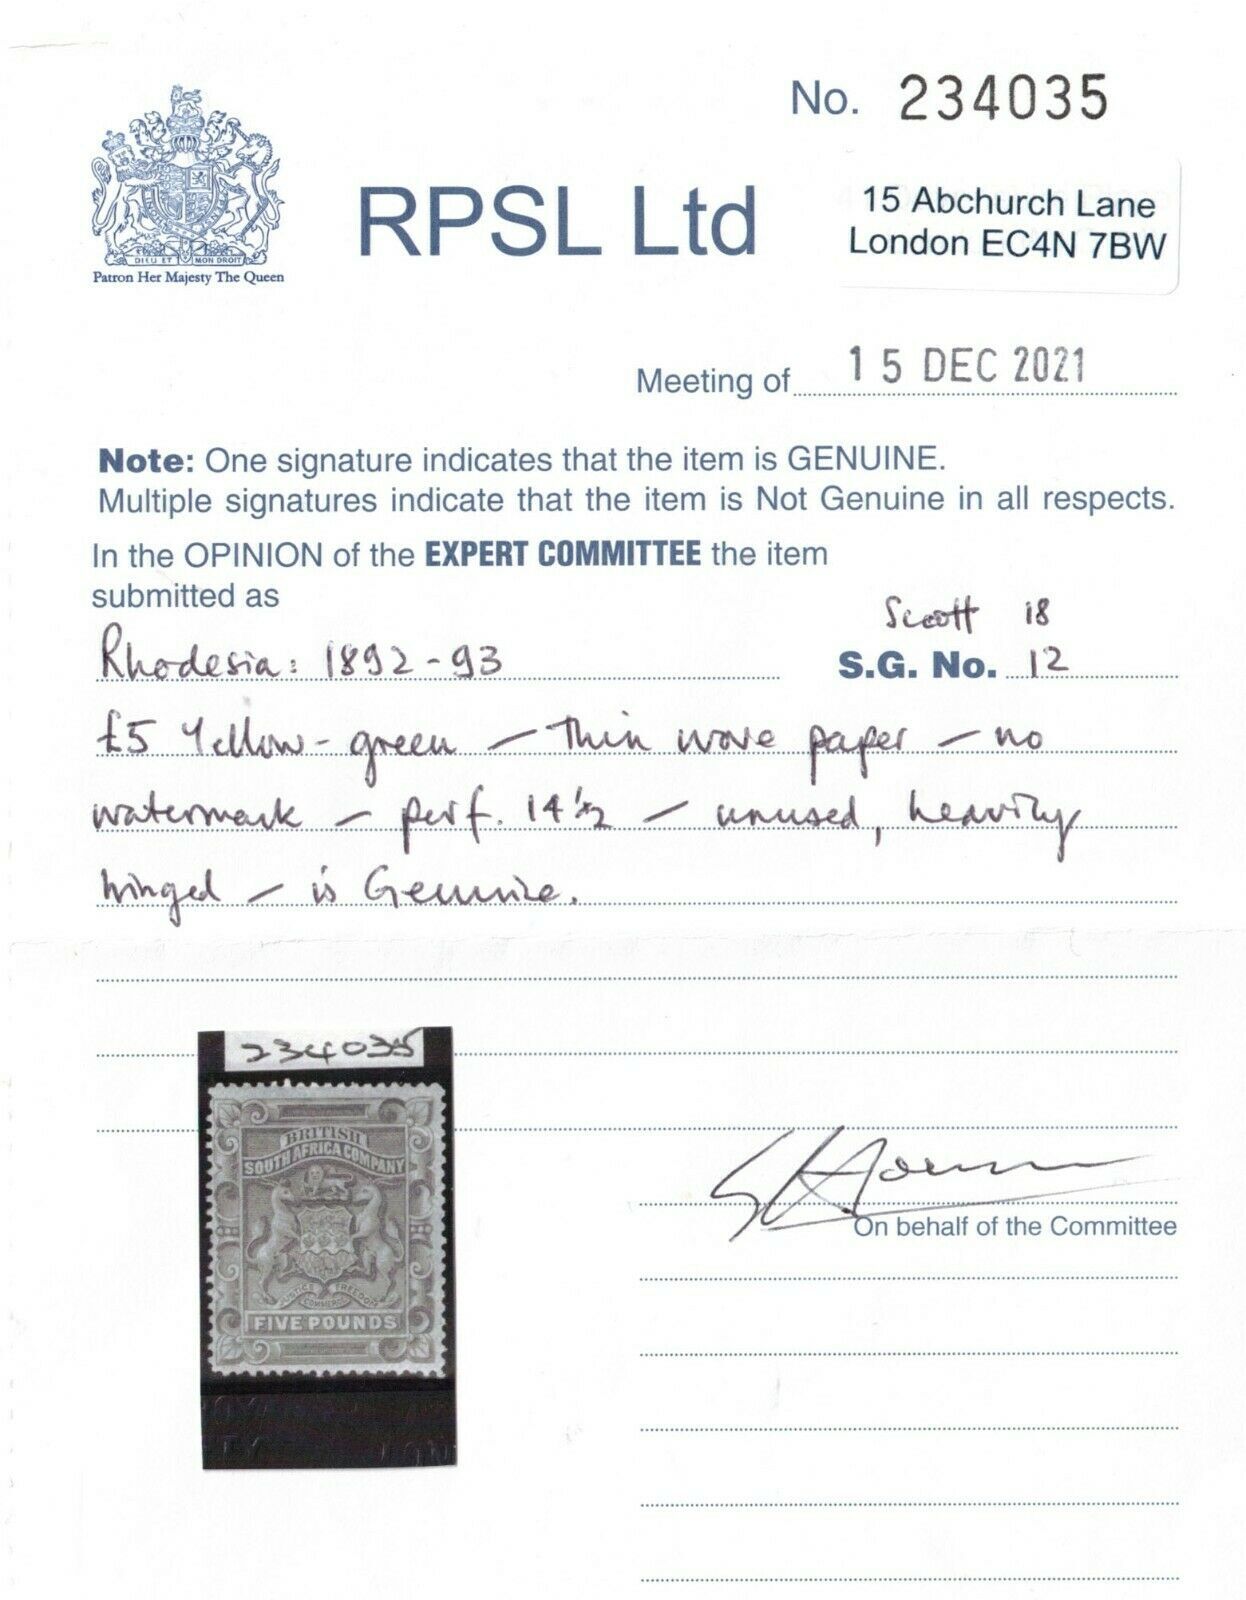 No. 234035
RPSL Ltd
15 Abchurch Lane
London EC4N 7BW
DIEU ET MON DROIT
Patron Her Majesty The Queen
Meeting of 15 DEC 2021
Note: One signature indicates that the item is GENUINE.
Multiple signatures indicate that the item is Not Genuine in all respects.
In the OPINION of the EXPERT COMMITTEE the item
submitted as
Scott 18
Rhodesia: 1892-93 S.G. No. 12
£5 Yellow-green – thin wove paper – no
watermark – perf. 14½ – unused, heavily
hinged – is Genuine.
234035
BRITISH
SOUTH AFRICA COMPANY
JUSTICE FREEDOM
COMMERCE
FIVE POUNDS
On behalf of the Committee